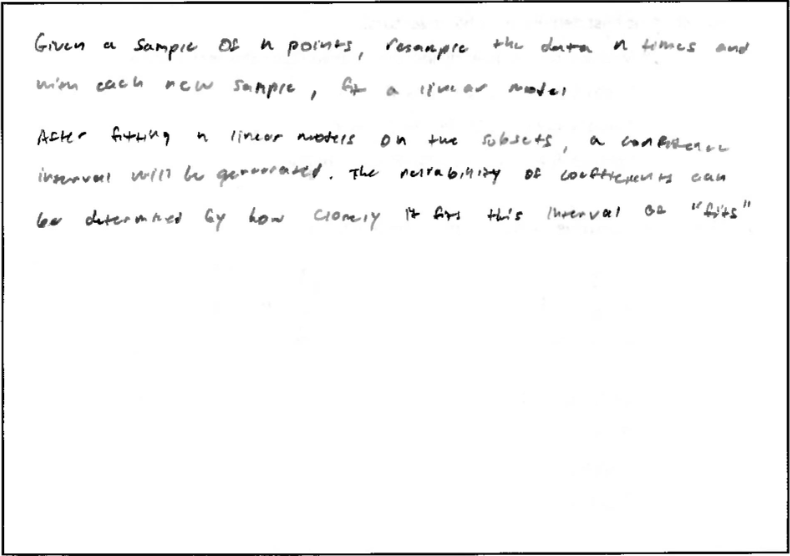 Given a sample of n points, resample the data n times and
with each new sample, fit a linear model
After fitting n linear models on the subsets, a confidence
interval will be generated. The reliability of coefficients can
be determined by how closely it fits this interval of "fits"